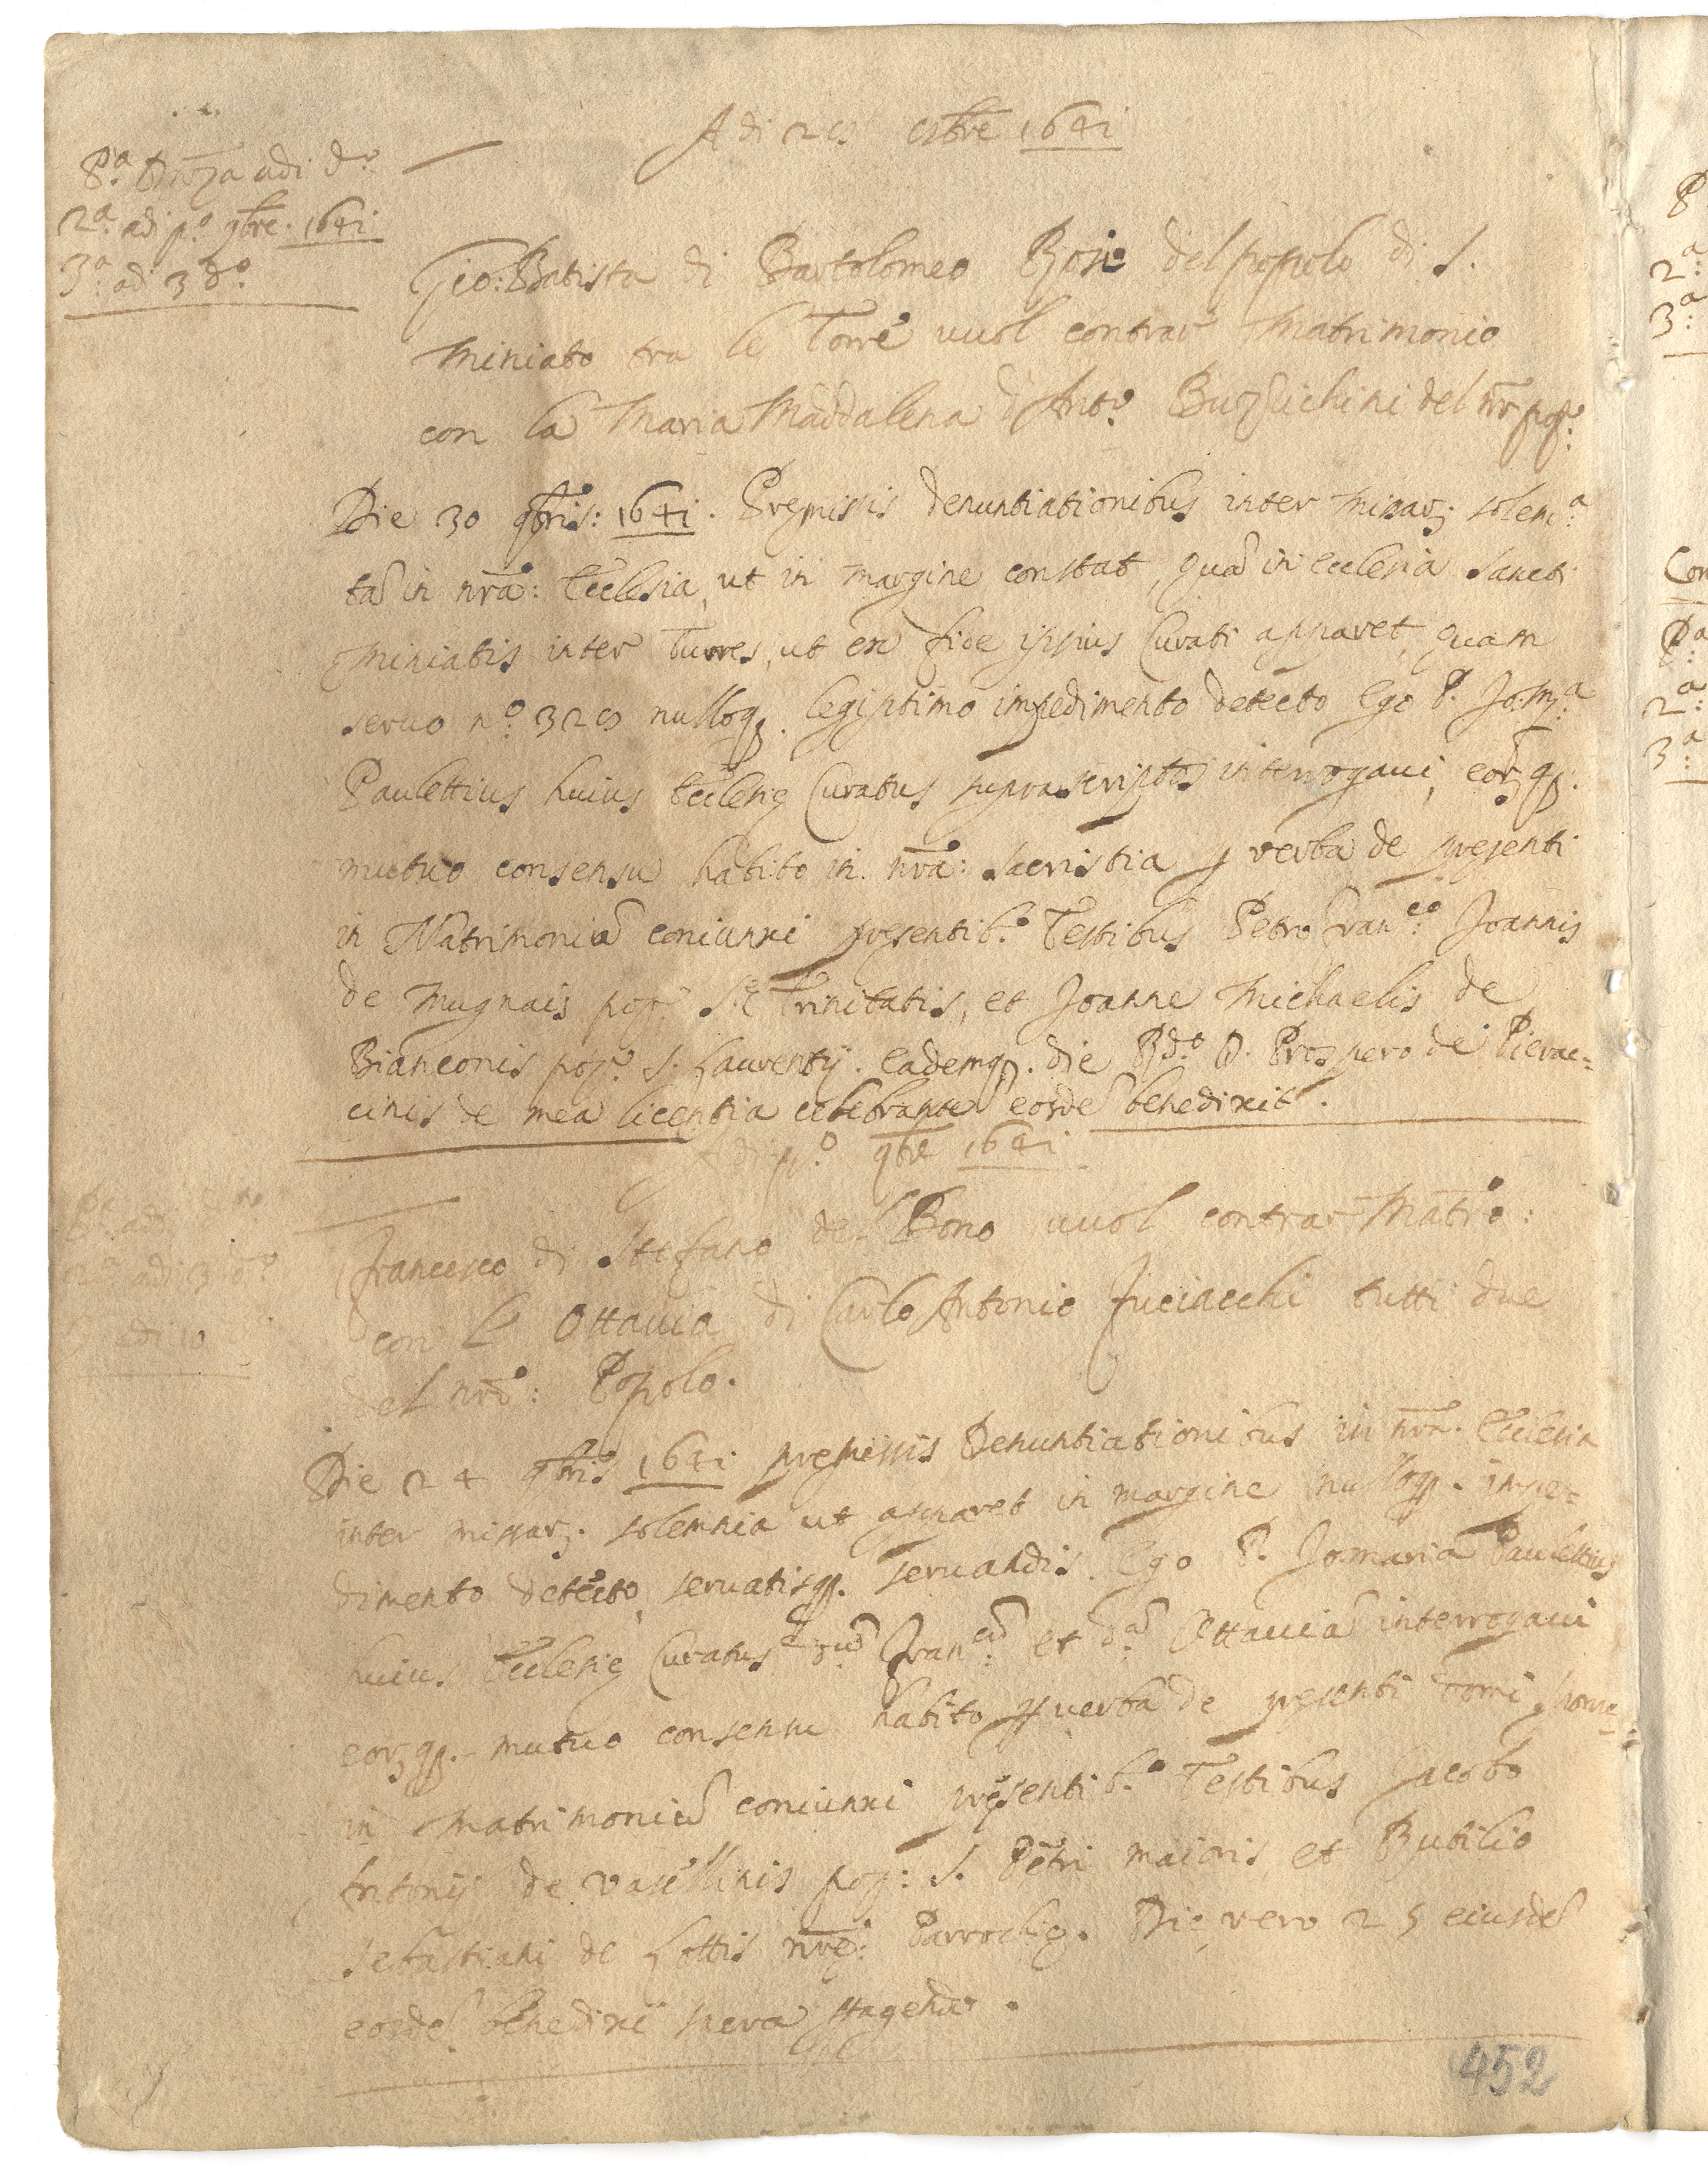 Adi 28 8bre 1641
Pa. Dnza adi do.
2a. adi po. 9bre. 1641
3a. adi 3 do.
Gio: Batista di Bartolomeo Rosi del popolo di S.
Miniato tra le Torre vuol contrar Matrimonio
con la Maria Maddalena d'Anto. del nro pop.o
Die 30 9bris: 1641. Premissis denuntiationibus inter missar. solemn.a
tam in nra: Ecclesia, ut in margine constat, quam in ecclesia Sancti
Miniatis inter Turres, ut ex fide ipsius Curati apparet, quam
servo no. 328 nulloq. legiptimo impedimento detecto Ego P. Jo: Ma.
Paulettius huius Ecclesie Curatus suprascriptos interrogavi, eor.q.
mutuo consensu habito in nra: sacristia p verba de presenti
in Matrimoniu coniunxi presentib.o Testibus Petro Fran.co Joannis
de Mugnais pop.o S.e Trinitatis, et Joanne Michaelis de
Bianconis pop.o S. Laurentij. eademq. die Rdo. D. Prospero de Pierac=
cinis de mea licentia celebrante eosde benedixit.
Adi po. 9bre 1641
Pa. adi do.
2a. adi 3 do.
adi 10
Francesco di Stefano del Bono vuol contrar Matro:
con la Ottavia di Carlo Antonio Fuciacchi tutti due
del nro: Popolo.
Die 24 9bris 1641 premissis Denuntiationibus in nra. Ecclesia
inter missar. solemnia ut apparet in margine nulloq. impe=
dimento detecto, servatisq. servandis. Ego P. Jo: maria Paulettius
huius Ecclesie Curatus Fran.cu et da. Ottavia interrogavi
eor.q. mutuo consensu habito p verba de presenti
in Matrimoniu coniunxi presentib.o Testibus Jacobo
Antonij de Vasellinis pop: S. Petri maioris et Rutilio
Sebastiani de Lottis nre: Parrochie. Die vero 25 eiusde
eosde benedixi
452